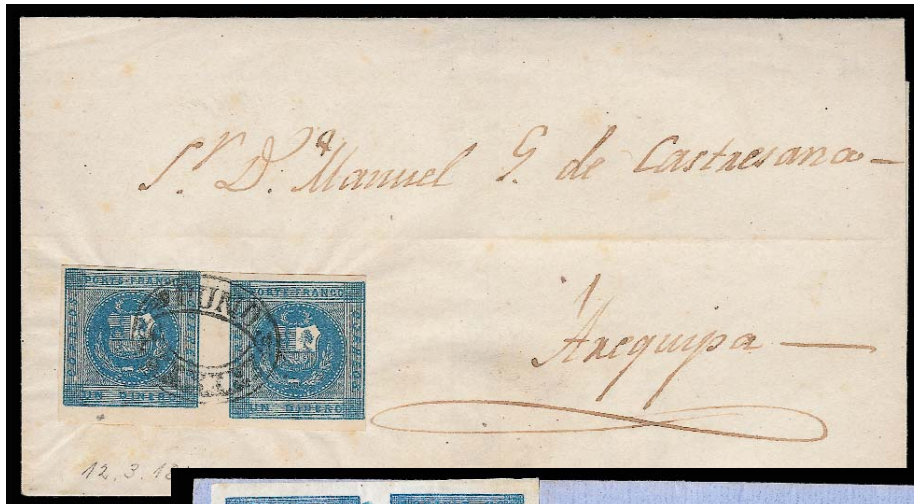 Sr. Dn. Manuel G. de Castresana
Arequipa
PORTE FRANCO
UN DINERO
PORTE FRANCO
UN DINERO
12.3.18